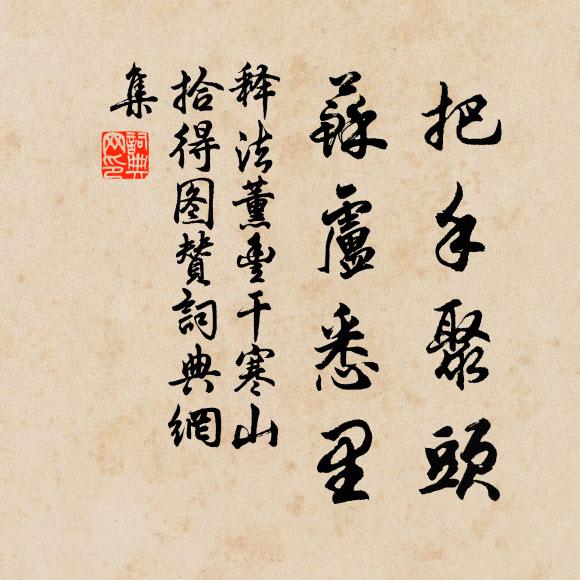 把手聚頭
蘇盧悉里
释法薰豊干寒山
拾得图贊詞典網
集
詞典網印